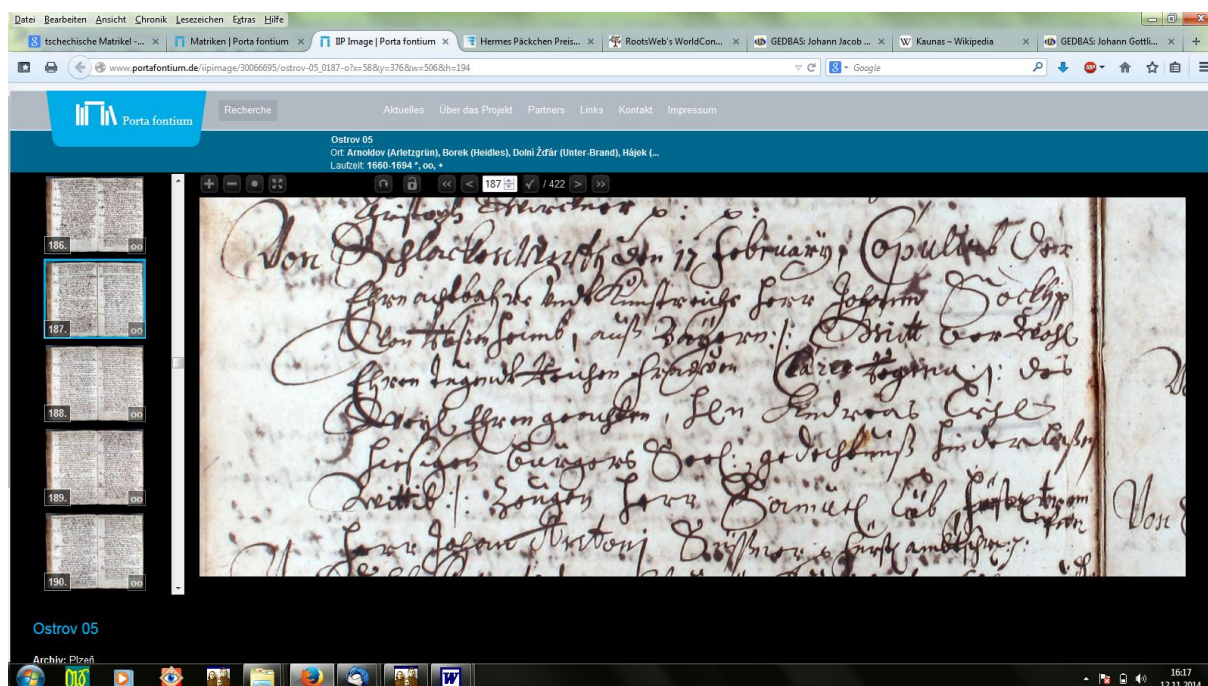 Datei Bearbeiten Ansicht Chronik Lesezeichen Extras Hilfe
tschechische Matrikel -... × Matriken | Porta fontium × IIP Image | Porta fontium × Hermes Päckchen Preis... × RootsWeb's WorldCon... × GEDBAS: Johann Jacob ... × Kaunas – Wikipedia × GEDBAS: Johann Gottli... × +
www.portafontium.de/iipimage/30066695/ostrov-05_0187-o?x=58&y=376&w=506&h=194
Google
Porta fontium
Recherche Aktuelles Über das Projekt Partners Links Kontakt Impressum
Ostrov 05
Ort: Arnoldov (Arletzgrün), Borek (Heidles), Dolní Žďár (Unter-Brand), Hájek (...
Laufzeit: 1660-1694 *, oo, +
187 / 422
186. oo
187. oo
188. oo
189. oo
190. oo
Von Schlackenwerth den 17 February, Copuliert Der
Ehrnachtbahre undt Kunstreiche Herr Johann
Von heimb, auß Bayern /: Mitt der Wohl
Ehren Tugendt Reichen Frauen Clara Regina /: des
Weyl Ehren geachten, Andreas
hiesigen Bürgers Seel: gedechtnuß hinderlaßen
Wittib /: Zeugen Herr Samuel
Herr Johan Antoni
Von
Ostrov 05
Archiv: Plzeň
16:17
12.11.2014